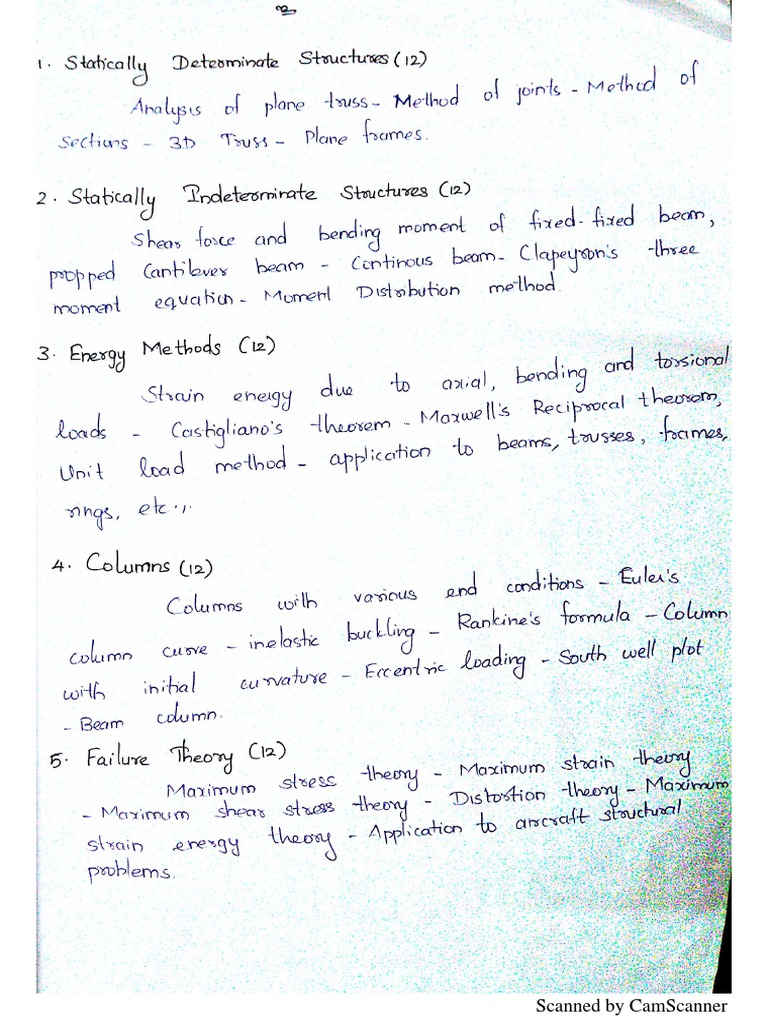 1. Statically Determinate Structures (12)
Analysis of plane truss - Method of joints - Method of
Sections - 3D Truss - Plane frames.
2. Statically Indeterminate Structures (12)
Shear force and bending moment of fixed-fixed beam,
propped Cantilever beam - Continous beam - Clapeyron's three
moment equation - Moment Distribution method.
3. Energy Methods (12)
Strain energy due to axial, bending and torsional
loads - Castigliano's theorem - Maxwell's Reciprocal theorem,
Unit load method - application to beams, trusses, frames,
rings, etc.,.
4. Columns (12)
Columns with various end conditions - Euler's
column curve - inelastic buckling - Rankine's formula - Column
with initial curvature - Eccentric loading - South well plot
- Beam column.
5. Failure Theory (12)
Maximum stress theory - Maximum strain theory
- Maximum shear stress theory - Distortion theory - Maximum
strain energy theory - Application to aircraft structural
problems.
Scanned by CamScanner